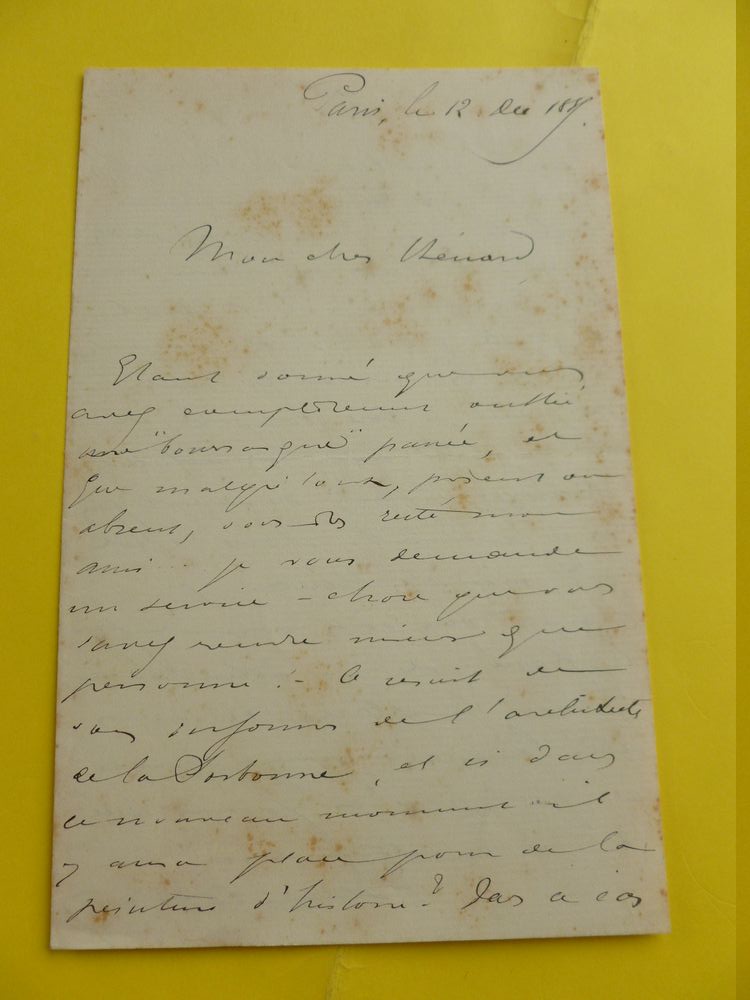 Paris, le 12 Dec
Mon cher
Etant donné que vous
avez complètement oublié
ma "bourrasque" passée, et
que malgré tout, présent ou
absent, vous êtes resté mon
ami - je vous demande
un service - chose que vous
savez rendre mieux que
personne! - Ce serait de
vous informer de l'architecte
de la Sorbonne, et si dans
ce nouveau monument il
y aura place pour de la
peinture d'histoire? Dans ce cas